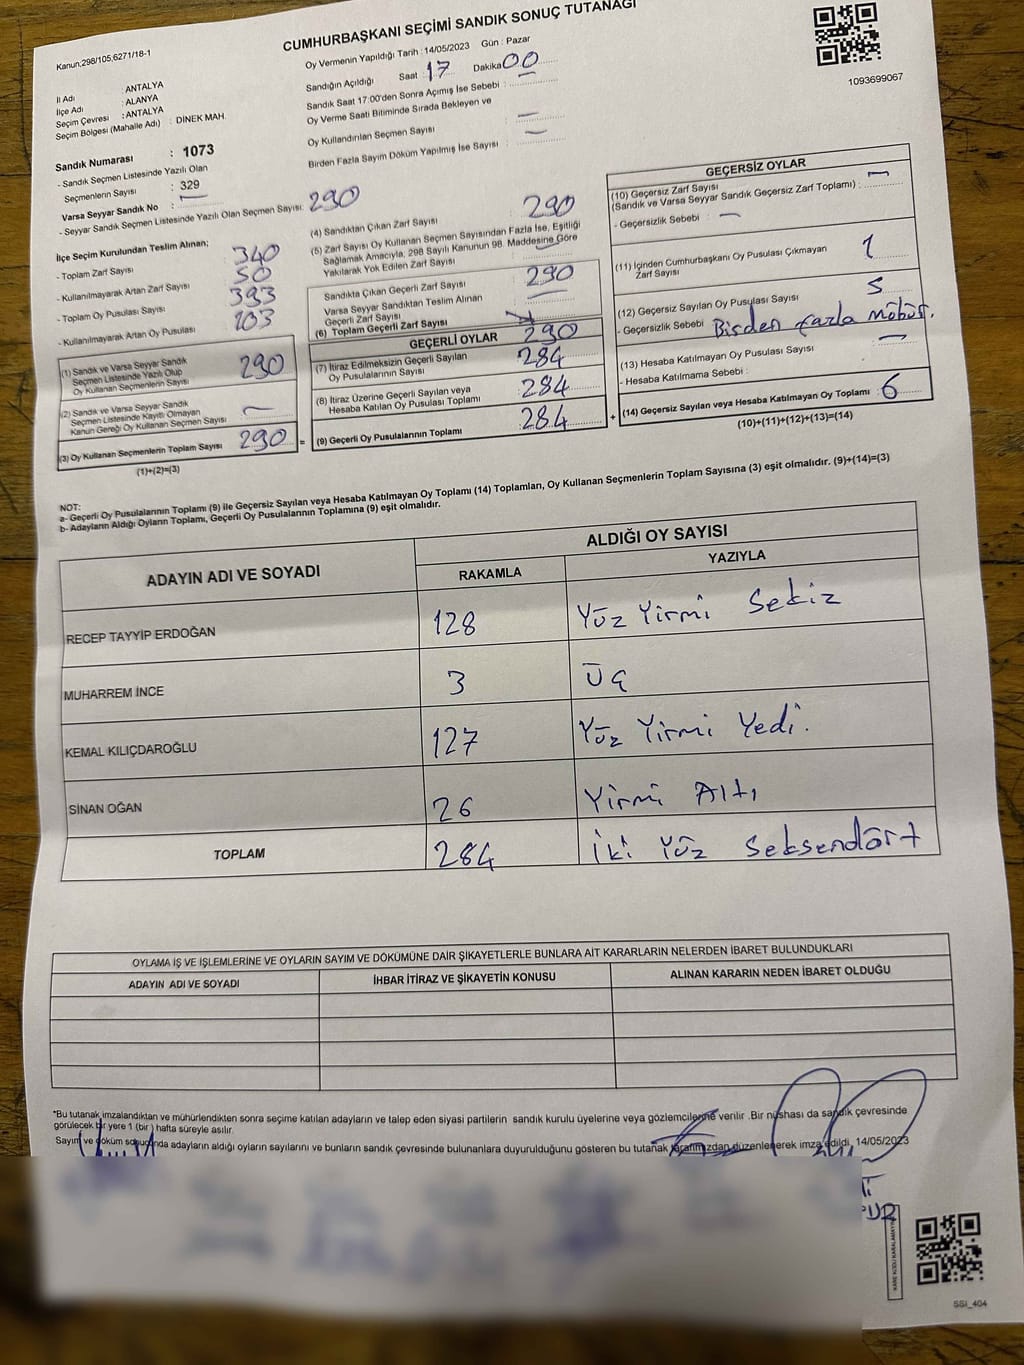 CUMHURBAŞKANI SEÇİMİ SANDIK SONUÇ TUTANAĞI
Kanun,298/105,6271/18-1
Oy Vermenin Yapıldığı Tarih : 14/05/2023 Gün : Pazar
Sandığın Açıldığı Saat : 17 Dakika 00
Sandık Saat 17:00'den Sonra Açımış İse Sebebi : —
Oy Verme Saati Bitiminde Sırada Bekleyen ve
Oy Kullandırılan Seçmen Sayısı : —
Birden Fazla Sayım Döküm Yapılmış İse Sayısı : —
1093699067
İl Adı : ANTALYA
İlçe Adı : ALANYA
Seçim Çevresi : ANTALYA
Seçim Bölgesi (Mahalle Adı) : DİNEK MAH.
Sandık Numarası : 1073
- Sandık Seçmen Listesinde Yazılı Olan
Seçmenlerin Sayısı : 329
Varsa Seyyar Sandık No : —
- Seyyar Sandık Seçmen Listesinde Yazılı Olan Seçmen Sayısı: 290
İlçe Seçim Kurulundan Teslim Alınan;
- Toplam Zarf Sayısı 340
- Kullanılmayarak Artan Zarf Sayısı 50
- Toplam Oy Pusulası Sayısı 393
- Kullanılmayarak Artan Oy Pusulası 103
(1) Sandık ve Varsa Seyyar Sandık
Seçmen Listesinde Yazılı Olup
Oy Kullanan Seçmenlerin Sayısı 290
(2) Sandık ve Varsa Seyyar Sandık
Seçmen Listesinde Kayıtlı Olmayan
Kanun Gereği Oy Kullanan Seçmen Sayısı : —
(3) Oy Kullanan Seçmenlerin Toplam Sayısı 290 =
(1)+(2)=(3)
(4) Sandıktan Çıkan Zarf Sayısı 290
(5) Zarf Sayısı Oy Kullanan Seçmen Sayısından Fazla İse, Eşitliği
Sağlamak Amacıyla, 298 Sayılı Kanunun 98. Maddesine Göre
Yakılarak Yok Edilen Zarf Sayısı —
Sandıkta Çıkan Geçerli Zarf Sayısı 290
Varsa Seyyar Sandıktan Teslim Alınan
Geçerli Zarf Sayısı —
(6) Toplam Geçerli Zarf Sayısı 290
GEÇERLİ OYLAR
(7) İtiraz Edilmeksizin Geçerli Sayılan
Oy Pusulalarının Sayısı 284
(8) İtiraz Üzerine Geçerli Sayılan veya
Hesaba Katılan Oy Pusulası Toplamı 284
(9) Geçerli Oy Pusulalarının Toplamı : 284 +
GEÇERSİZ OYLAR
(10) Geçersiz Zarf Sayısı
(Sandık ve Varsa Seyyar Sandık Geçersiz Zarf Toplamı) : —
- Geçersizlik Sebebi : —
(11) İçinden Cumhurbaşkanı Oy Pusulası Çıkmayan
Zarf Sayısı 1
(12) Geçersiz Sayılan Oy Pusulası Sayısı 5
- Geçersizlik Sebebi Birden fazla möhür.
(13) Hesaba Katılmayan Oy Pusulası Sayısı : —
- Hesaba Katılmama Sebebi :
(14) Geçersiz Sayılan veya Hesaba Katılmayan Oy Toplamı : 6
(10)+(11)+(12)+(13)=(14)
NOT:
a- Geçerli Oy Pusulalarının Toplamı (9) ile Geçersiz Sayılan veya Hesaba Katılmayan Oy Toplamı (14) Toplamları, Oy Kullanan Seçmenlerin Toplam Sayısına (3) eşit olmalıdır. (9)+(14)=(3)
b- Adayların Aldığı Oyların Toplamı, Geçerli Oy Pusulalarının Toplamına (9) eşit olmalıdır.
ADAYIN ADI VE SOYADI ALDIĞI OY SAYISI
RAKAMLA YAZIYLA
RECEP TAYYİP ERDOĞAN 128 Yüz Yirmi Sekiz
MUHARREM İNCE 3 Üç
KEMAL KILIÇDAROĞLU 127 Yüz Yirmi Yedi.
SİNAN OĞAN 26 Yirmi Altı
TOPLAM 284 İki Yüz Seksendört
OYLAMA İŞ VE İŞLEMLERİNE VE OYLARIN SAYIM VE DÖKÜMÜNE DAİR ŞİKAYETLERLE BUNLARA AİT KARARLARIN NELERDEN İBARET BULUNDUKLARI
ADAYIN ADI VE SOYADI İHBAR İTİRAZ VE ŞİKAYETİN KONUSU ALINAN KARARIN NEDEN İBARET OLDUĞU
*Bu tutanak imzalandıktan ve mühürlendikten sonra seçime katılan adayların ve talep eden siyasi partilerin sandık kurulu üyelerine veya gözlemcilerine verilir .Bir nüshası da sandık çevresinde
görülecek bir yere 1 (bir ) hafta süreyle asılır.
Sayım ve döküm sonucunda adayların aldığı oyların sayılarını ve bunların sandık çevresinde bulunanlara duyurulduğunu gösteren bu tutanak tarafımızdan düzenlenerek imza edildi. 14/05/2023
KARE KODU KARALAMAYIN
SSI_404